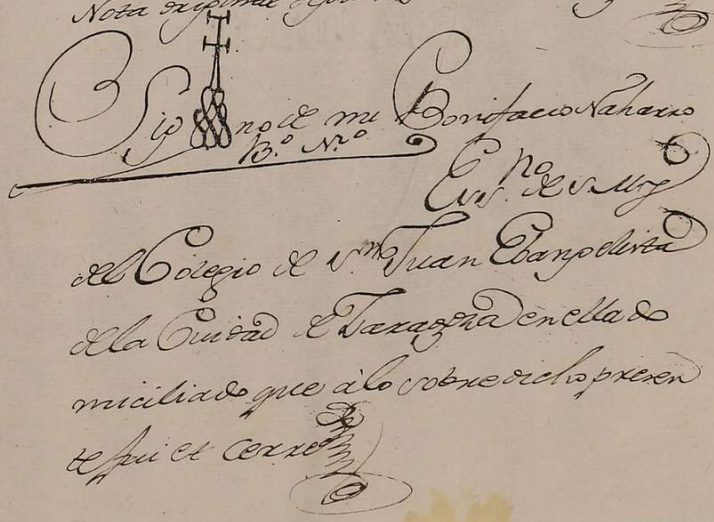 Nota original
Sig no de mi Bonifacio Naharro
B.º N.ro
Ess.no de S. Mg
del Colegio de S.n Juan Ebangelista
de la Ciudad de Tarazona en ella do
miciliado que á lo sobre dicho presen
te fui et cerre